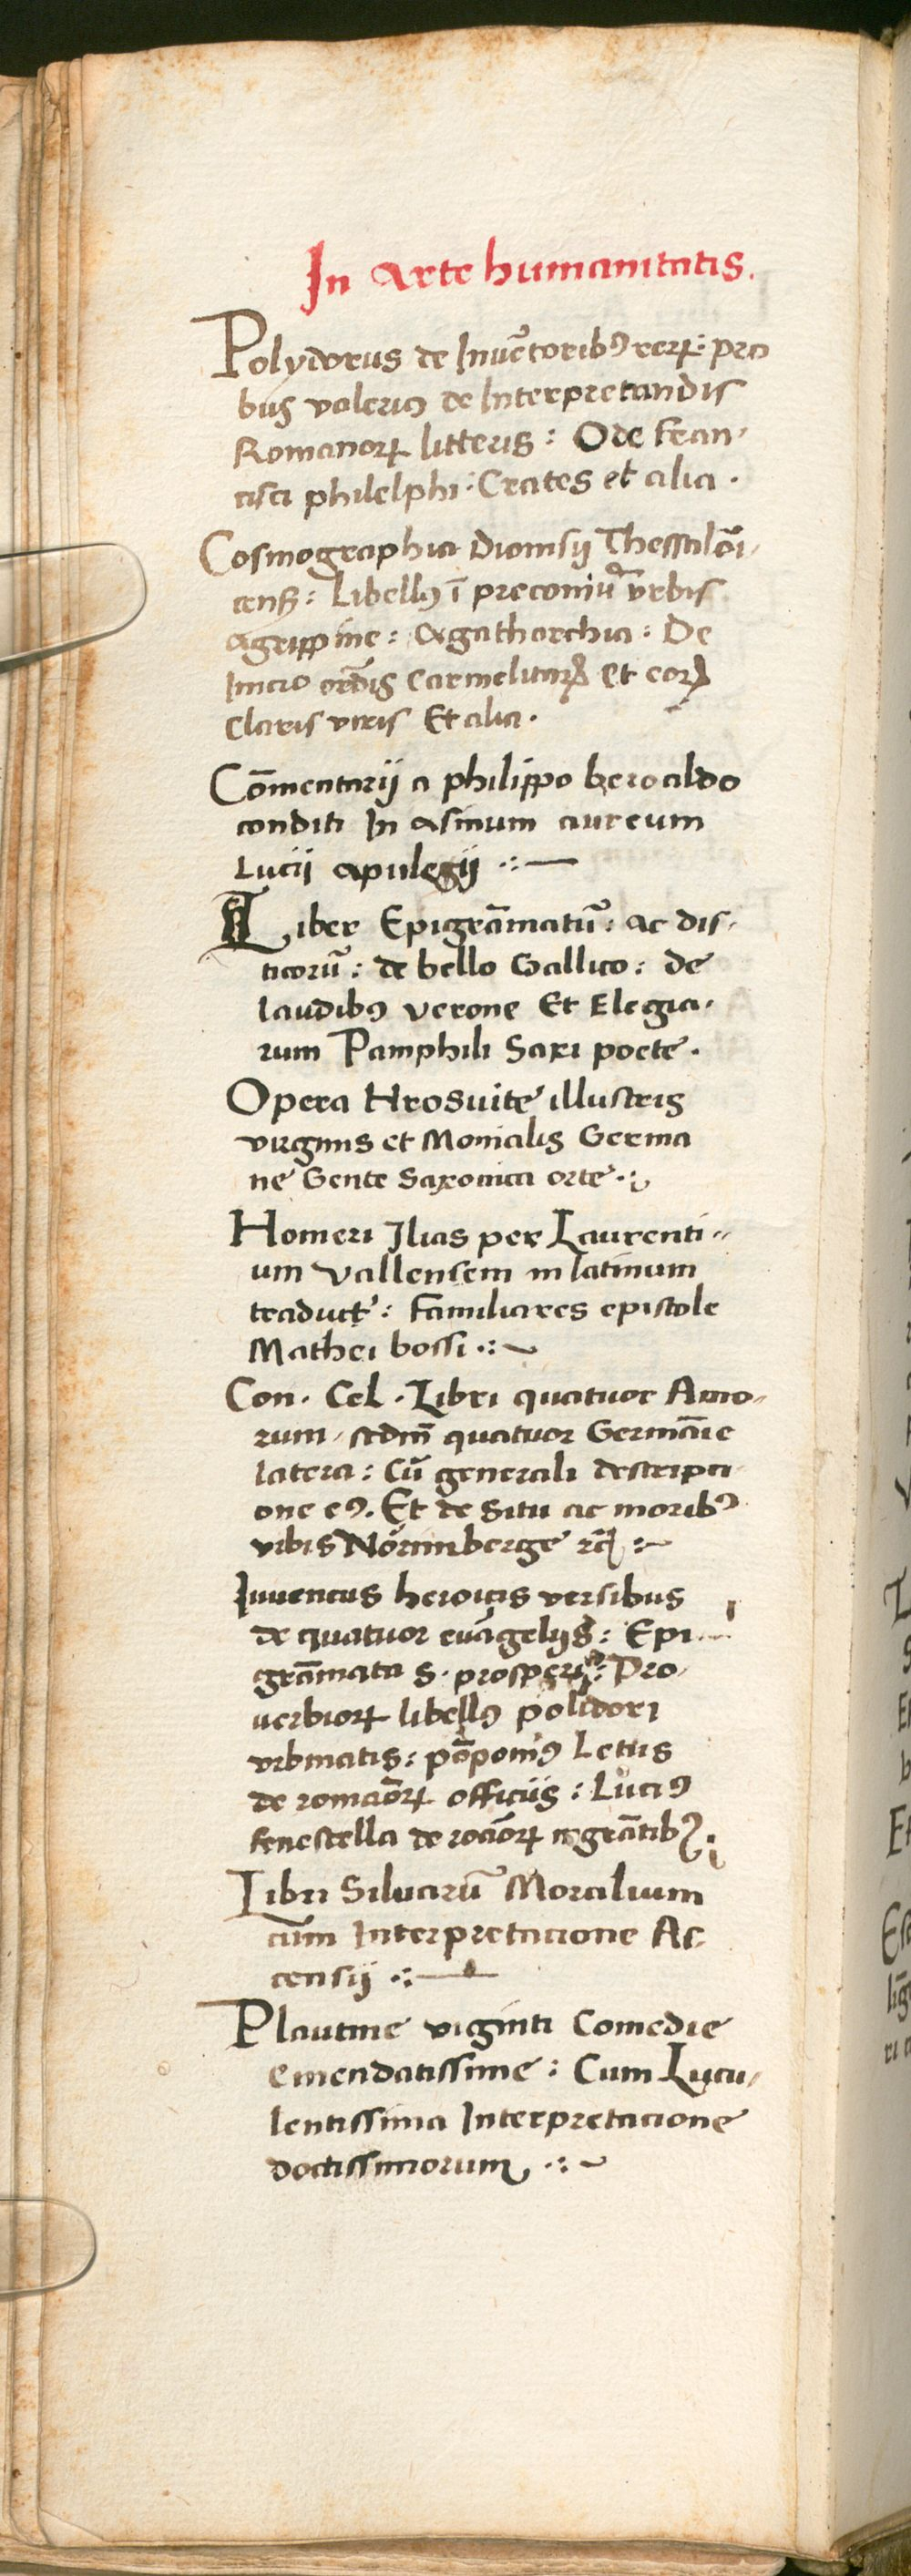 In Arte humanitatis.
Polydorus de Inuētoribꝰ rerꝝ: pro
bus valeriꝰ de Interpretandis
Romanorꝝ litteris: Ode Fran-
cisci philelphi: Crates et alia.
Cosmographia Dionisij Thessalōi-
censꝭ: Libellꝰ ī preconiū vrbis
Agrippine: Agatharchia: De
Inicio ordīs Carmelitarꝝ et eorꝝ
Claris viris Et alia.
Cōmentarij a philippo beroaldo
conditi In Asinum aureum
Lucij apulegij ·:—
Liber Epigrāmatū: ac dis-
ticorū: de bello Gallico: de
laudibꝰ verone Et Elegia-
rum Pamphili Saxi poete.
Opera Hrosuite illustris
virginis et Monialis Germa
ne Gente Saxonica orte·:
Homeri Ilias per Laurenti-
um Vallensem in latinum
traduct': Familiares epistole
Mathei bossi·:~
Con. Cel. Libri quatuor Amo-
rum, scdm̄ quatuor Germāie
latera: Cū generali descripti
one eꝰ. Et de Situ ac moribꝰ
vrbis Nörimberge rc̄:~
Iuuencus heroicis versibus
de quatuor euāgelijs: Epi-
grāmata S. prosperi: Pro-
uerbiorꝝ libellꝰ polidori
vrbinatis: pōponiꝰ Letus
de romāorꝝ officijs: Luciꝰ
fenestella de roāorꝝ mgrātibꝰ:
Libri Siluarū Moralium
cum Interpretacione As
censij ·:—
Plautine viginti Comedie
Emendatissime: Cum Lucu-
lentissima Interpretacione
doctissimorum ·:~